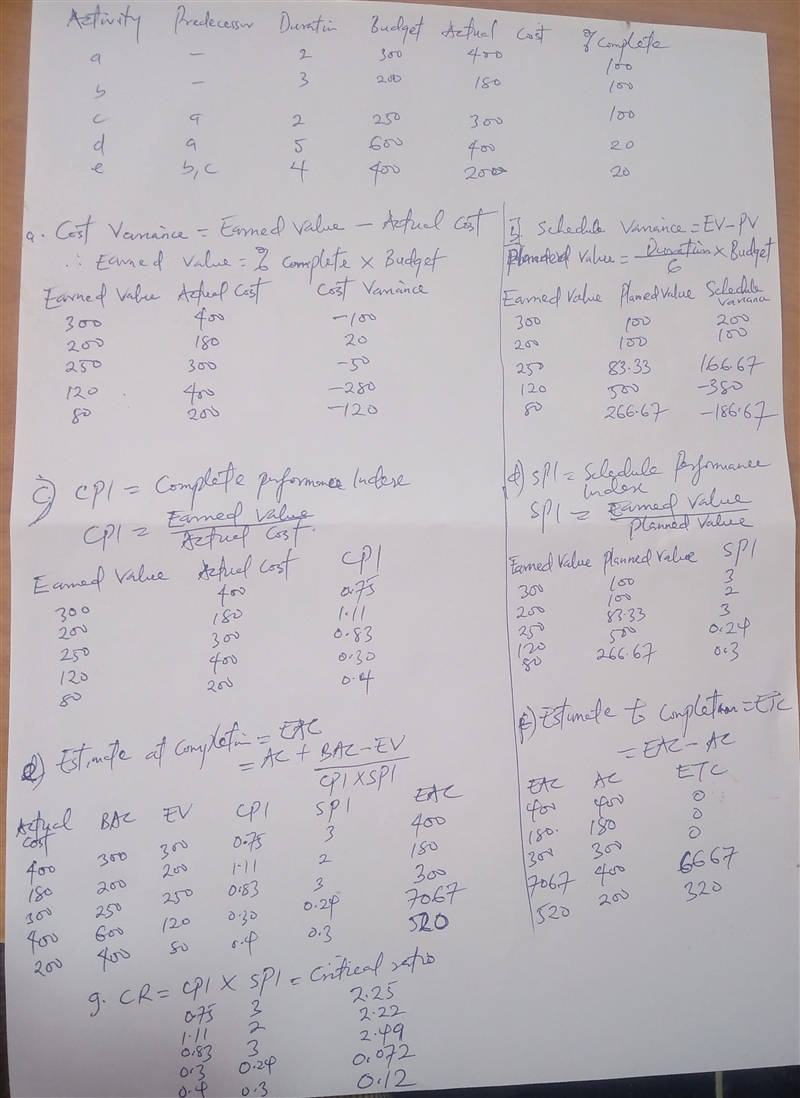 Activity Predecessor Duratin Budget Actual Cost % Complete
a – 2 300 400 100
b – 3 200 180 100
c a 2 250 300 100
d a 5 600 400 20
e b, c 4 400 200 20
a. Cost Variance = Earned Value – Actual Cost
∴ Earned Value = % Complete × Budget
Earned Value Actual Cost Cost Variance
300 400 –100
200 180 20
250 300 –50
120 400 –280
80 200 –120
Schedule Variance = EV–PV
Planned Value = Duration/6 × Budget
Earned Value Planed Value Schedule Variance
300 100 200
200 100 100
250 83.33 166.67
120 500 –380
80 266.67 –186.67
c) CPI = Complete performance Index
CPI = Earned Value/Actual Cost.
Earned Value Actual Cost CPI
300 400 0.75
200 180 1.11
250 300 0.83
120 400 0.30
80 200 0.4
d) SPI = Schedule Performance
Index
SPI = Earned Value/Planned Value
Earned Value Planned Value SPI
300 100 3
200 100 2
250 83.33 3
120 500 0.24
80 266.67 0.3
e) Estimate at Completin = EAC
= AC + BAC – EV/CPI × SPI
Actual Cost BAC EV CPI SPI EAC
400 300 300 0.75 3 400
180 200 200 1.11 2 180
300 250 250 0.83 3 300
400 600 120 0.30 0.24 7067
200 400 80 0.4 0.3 520
f) Estimate to Completion = ETC
= EAC – AC
EAC AC ETC
400 400 0
180. 180 0
300 300 0
7067 400 6667
520 200 320
g. CR = CPI × SPI = Critical ratio
0.75 3 2.25
1.11 2 2.22
0.83 3 2.49
0.3 0.24 0.072
0.4 0.3 0.12